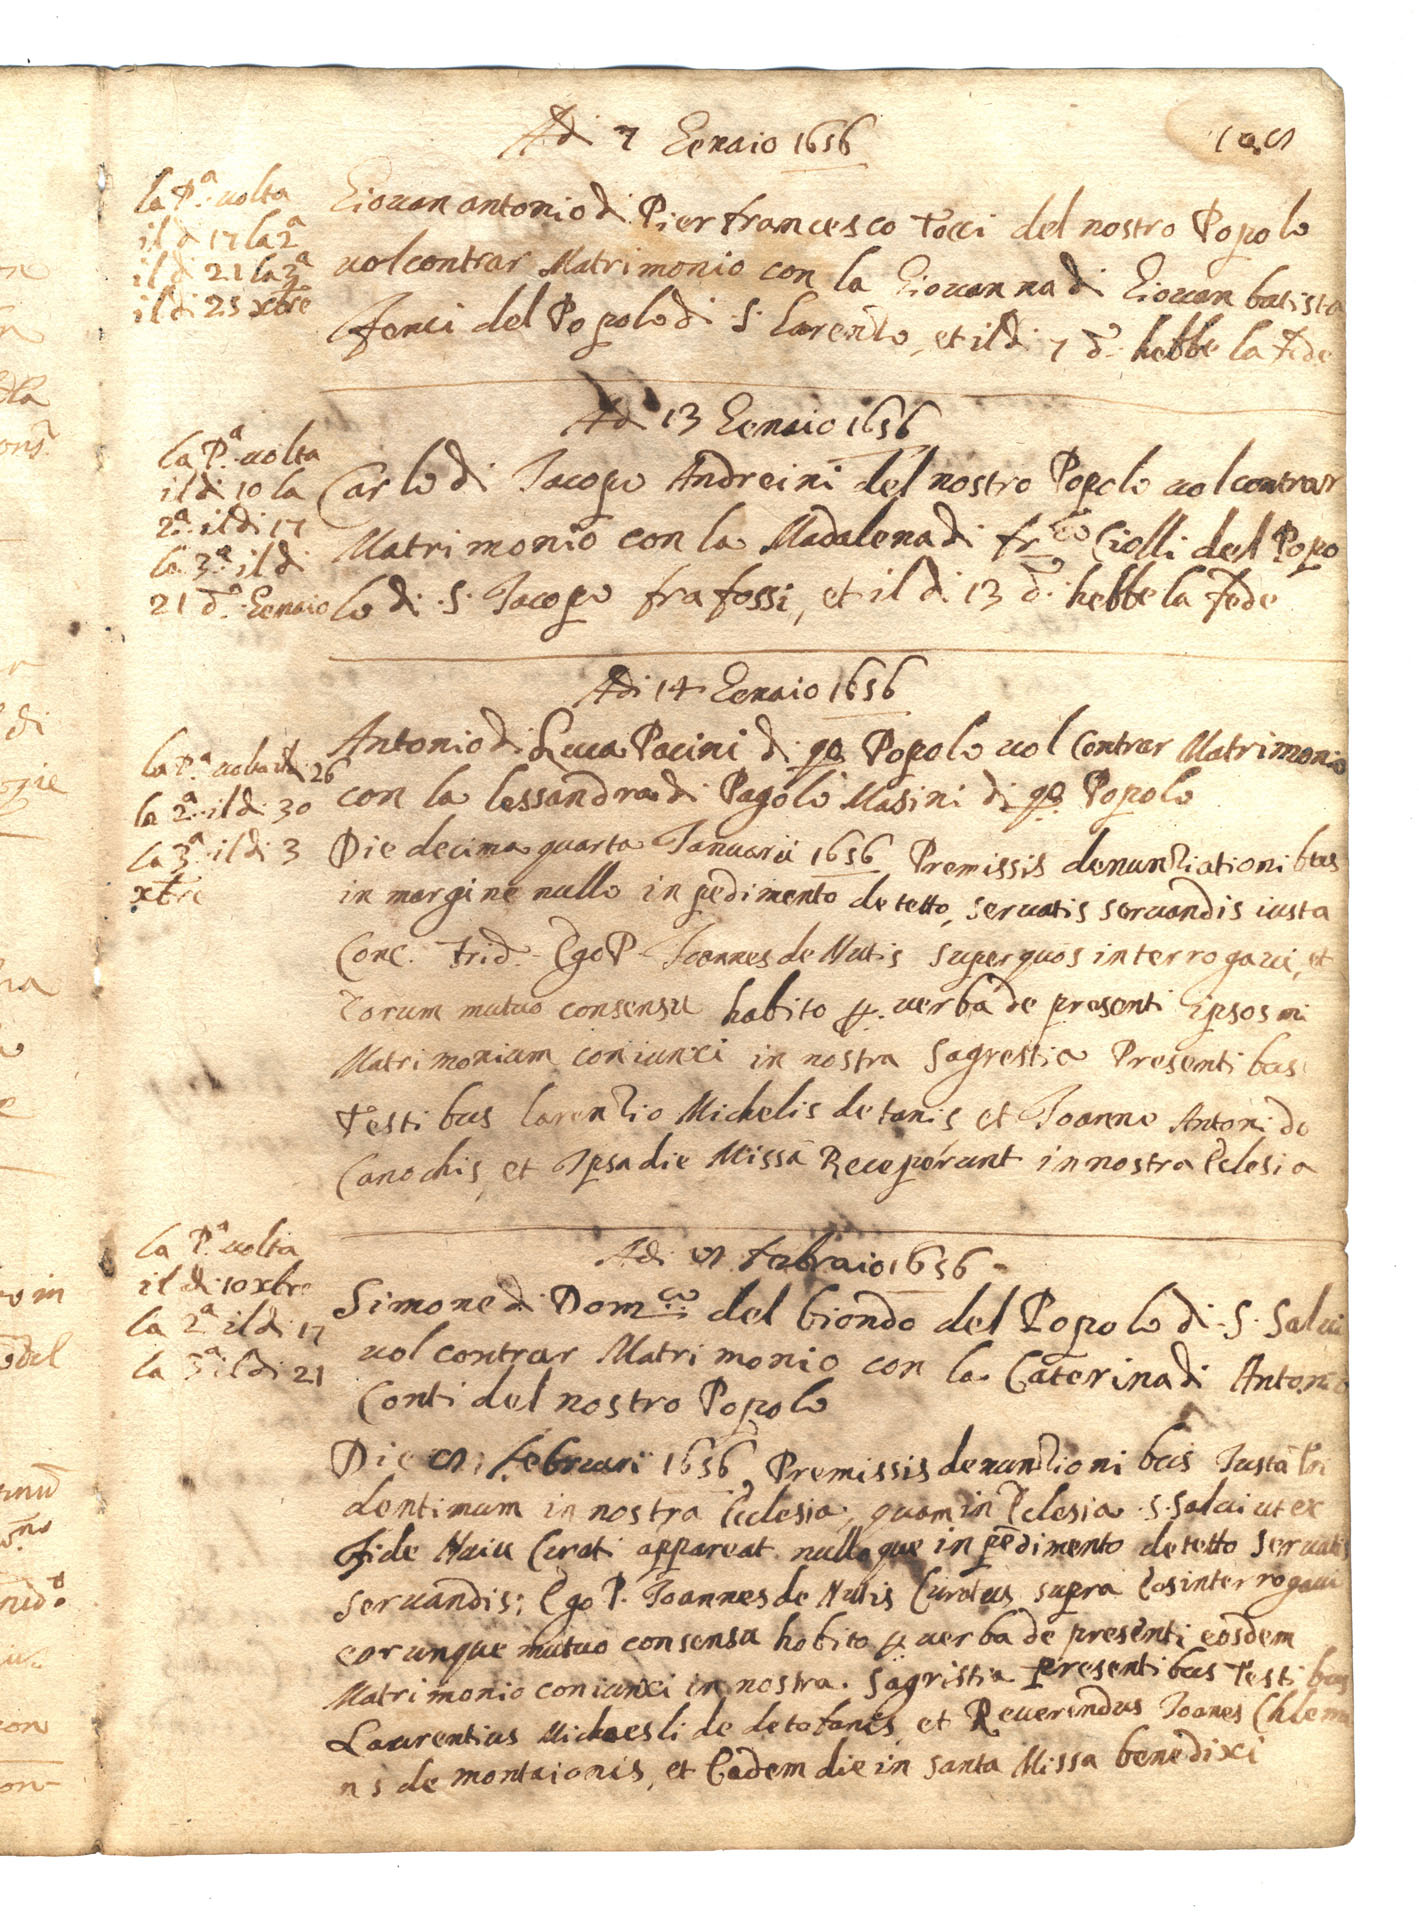 Adi 7 Genaio 1656
la P.a uolta
il di 17 la 2a
il di 21 la 3a
il di 25 xbre
Giouanantonio di Pierfrancesco Tocci del nostro Popolo
uol contrar Matrimonio con la Giouanna di Giouan batista
del Popolo di S. Lorenzo, et il di 7 d.o hebbe la Fede
Adi 13 Genaio 1656
la P.a uolta
il di 10 la
2a il di 17
la 3.a il di
21 d.o Genaio
Carlo di Jacopo Andreini del nostro Popolo uol contrar
Matrimonio con la Madalena di fr.co Ciolli del Popo
lo di S. Jacopo fra fossi, et il di 13 d.o hebbe la Fede
Adi 14 Genaio 1656
la P.a uolta il di 26
la 2.a il di 30
la 3.a il di 3
xbre
Antonio di Luca Pacini di q.o Popolo uol contrar Matrimonio
con la lessandra di Pagolo Masini di q.o Popolo
Die decima quarta Januarii 1656 Premissis denuntiationibus
in margine nullo inpedimento detetto, seruatis seruandis iusta
Conc. Trid. Ego P. Joannes de Nutis super quos interrogaui, et
eorum mutuo consensu habito p. uerba de presenti ipsos in
Matrimonium coniunxi in nostra sagrestia Presentibus
Testibus larenzio Michelis de tanis et Joanne Antoni de
Canochis, et Ipsa die Missa Receperunt in nostra Eclesia
la P.a uolta
il di 10 xbre
la 2.a il di 17
la 3.a il di 21
Adi febraio 1656
Simone di Dom.co del biondo del Popolo di S. Salui
uol contrar Matrimonio con la Caterina di Antonio
Conti del nostro Popolo
Die februari 1656, Premissis denunzionibus Justa Tri
dentinum in nostra Eclesia, quam in Eclesia S. Salui ut ex
fide Curati appareat nulloque inpedimento detetto seruatis
seruandis; Ego P. Joannes de Nutis Curatus supra eos interrogaui
eorunque mutuo consensu habito p uerba de presenti eosdem
Matrimonio coniunxi in nostra sagristia presentibus Testibus
Laurentius de et Reuerendus Joanes
de montaionis, et Eadem die in santa Missa benedixi